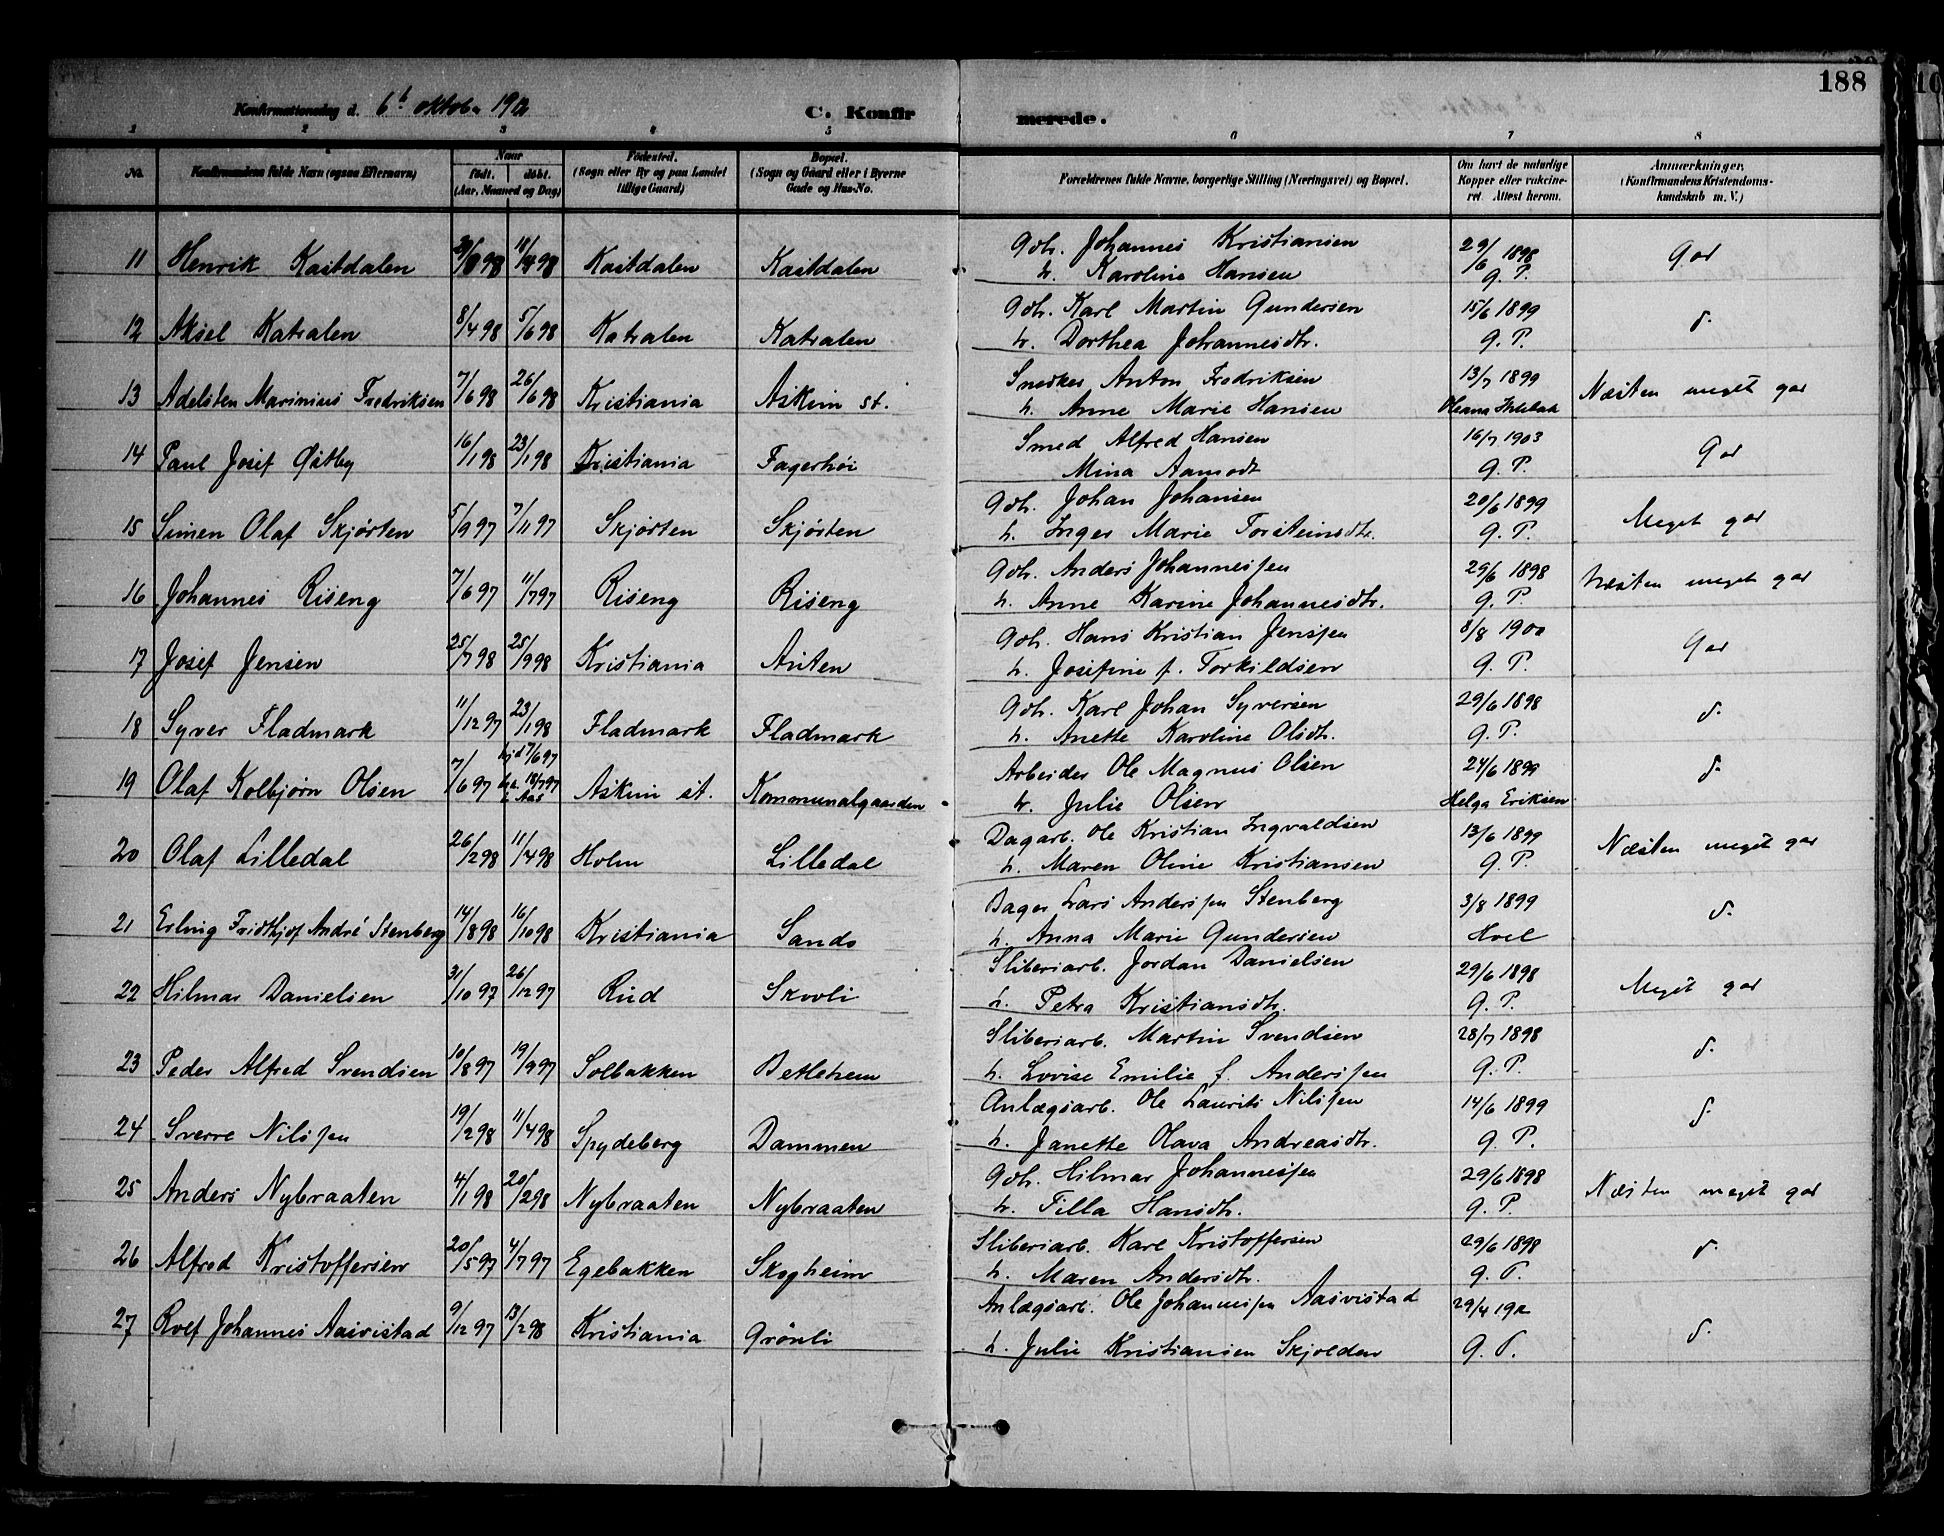 188
Konfirmationsdag d. 6t oktober 1912 C. Konfirmerede.
1 2 3 4 5 6 7 8
No. Konfirmandens fulde Navn (ogsaa Efternavn) Naar født. døbt. (Aar, Maaned og Dag) Fødested. (Sogn eller By og paa Landet tillige Gaard) Bopæl. (Sogn og Gaard eller i Byerne Gade og Hus-No. Forældrenes fulde Navne, borgerlige Stilling (Næringsvei) og Bopæl. Om havt de naturlige Kopper eller vakcineret. Attest herom. Anmærkninger, (Konfirmandens Kristendomskundskab m. V.)
11 Henrik Kastdalen 98 98 Kastdalen Kastdalen Gdr. Johannes Kristiansen 29/6 1898 God
h. Karoline Hansen G. P.
12 Aksel Katralen 8/4 98 5/6 98 Katralen Katralen Gdr. Karl Martin Gundersen 15/6 1899 d.
h. Dorthea Johannesdtr. G. P.
13 Adelsten Marinius Fredriksen 7/6 98 26/6 98 Kristiania Askim st. Snedker Anton Fredriksen 13/7 1899 Næsten meget god
h. Anne Marie Hansen Oleana
14 Paul Josef Østby 16/1 98 23/1 98 Kristiania Fagerhøi Smed Alfred Hansen 16/7 1903 God
Mina Aamodt G. P.
15 Simen Olaf Skjørten 5/9 97 7/11 97 Skjørten Skjørten Gdr. Johan Johansen 20/6 1899 Meget god
h. Inger Marie Torsteinsdtr. G. P.
16 Johannes Riseng 7/6 97 11/7 97 Riseng Riseng Gdr. Anders Johannessen 29/6 1898 Næsten meget god
h. Anne Karine Johannesdtr. G. P.
17 Josef Jensen 25/7 98 25/9 98 Kristiania Asten Gdr. Hans Kristian Jenssen 8/8 1900 God
h. Josefine f. Torkildsen G. P.
18 Syver Fladmark 11/12 97 23/1 98 Fladmark Fladmark Gdr. Karl Johan Syversen 29/6 1898 d.
h. Anette Karoline Olsdtr. G. P.
19 Olaf Kolbjørn Olsen 7/6 97 hjd 7/6 97 18/7 97 i Aas Askim st. Kommunalgaarden Arbeider Ole Magnus Olsen 24/6 1899 d.
h. Julie Olsen Helga Eriksen
20 Olaf Lilledal 26/2 98 11/4 98 Holm Lilledal Dagarb. Ole Kristian Ingvaldsen 13/6 1899 Næsten meget god
h. Maren Oline Kristiansen G. P.
21 Erling Fridthjof André Stenberg 14/8 98 16/10 98 Kristiania Sando Bager Lars Anderssen Stenberg 3/8 1899 d.
h. Anna Marie Gundersen Hoel
22 Hilmar Danielsen 31/10 97 26/12 97 Rud Skovli Sliberiarb. Jordan Danielsen 29/6 1898 Meget god
h. Petra Kristiansdtr. G. P.
23 Peder Alfred Svendsen 10/8 97 19/9 97 Solbakken Betlehem Sliberiarb. Martin Svendsen 28/7 1898 d.
h. Lovise Emilie f. Anderssen G. P.
24 Sverre Nilssen 19/2 98 11/4 98 Spydeberg Dammen Anlægsarb. Ole Laurits Nilssen 14/6 1899 d.
h. Janette Olava Andreasdtr. G. P.
25 Anders Nybraaten 4/1 98 20/2 98 Nybraaten Nybraaten Gdr. Hilmar Johannessen 29/6 1898 Næsten meget god
h. Tilla Hansdtr. G. P.
26 Alfred Kristoffersen 20/5 97 4/7 97 Egebakken Skogheim Sliberiarb. Karl Kristoffersen 29/6 1898 d.
h. Maren Andersdtr. G. P.
27 Rolf Johannes Aasvistad 9/12 97 13/2 98 Kristiania Grønli Anlægsarb. Ole Johannessen Aasvistad 29/4 1912 d.
h. Julie Kristiansen Skjolden G. P.